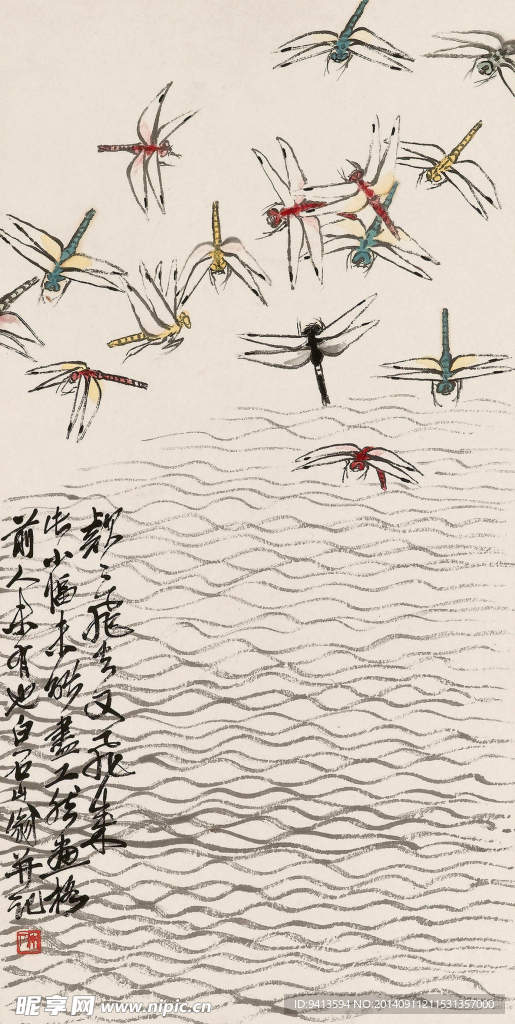 款款飛去又飛來
此小幅未能盡工然画格
前人未有也白石山翁并記
昵享网 www.nipic.cn
ID:9413594 NO:20140911211531357000